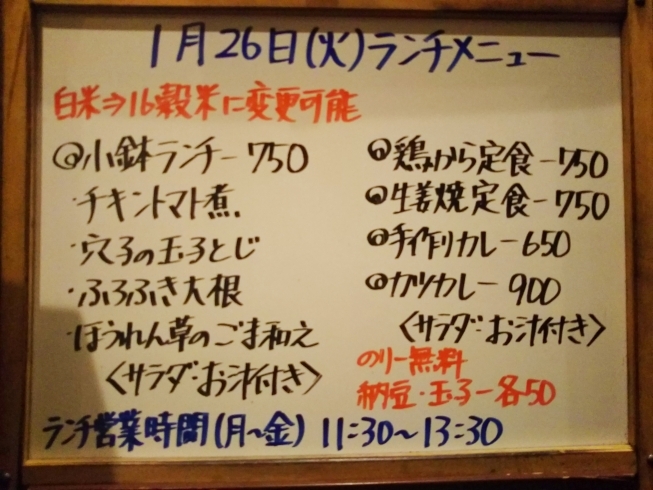 1月26日(火)ランチメニュー
白米⇒16穀米に変更可能
◎小鉢ランチ-750
・チキントマト煮.
・穴子の玉子とじ
・ふろふき大根
・ほうれん草のごま和え
〈サラダ・お汁付き〉
◎鶏から定食-750
◎生姜焼定食-750
◎手作りカレー650
◎カツカレー900
〈サラダ・お汁付き〉
のりー無料
納豆・玉子ー各50
ランチ営業時間(月~金) 11:30~13:30